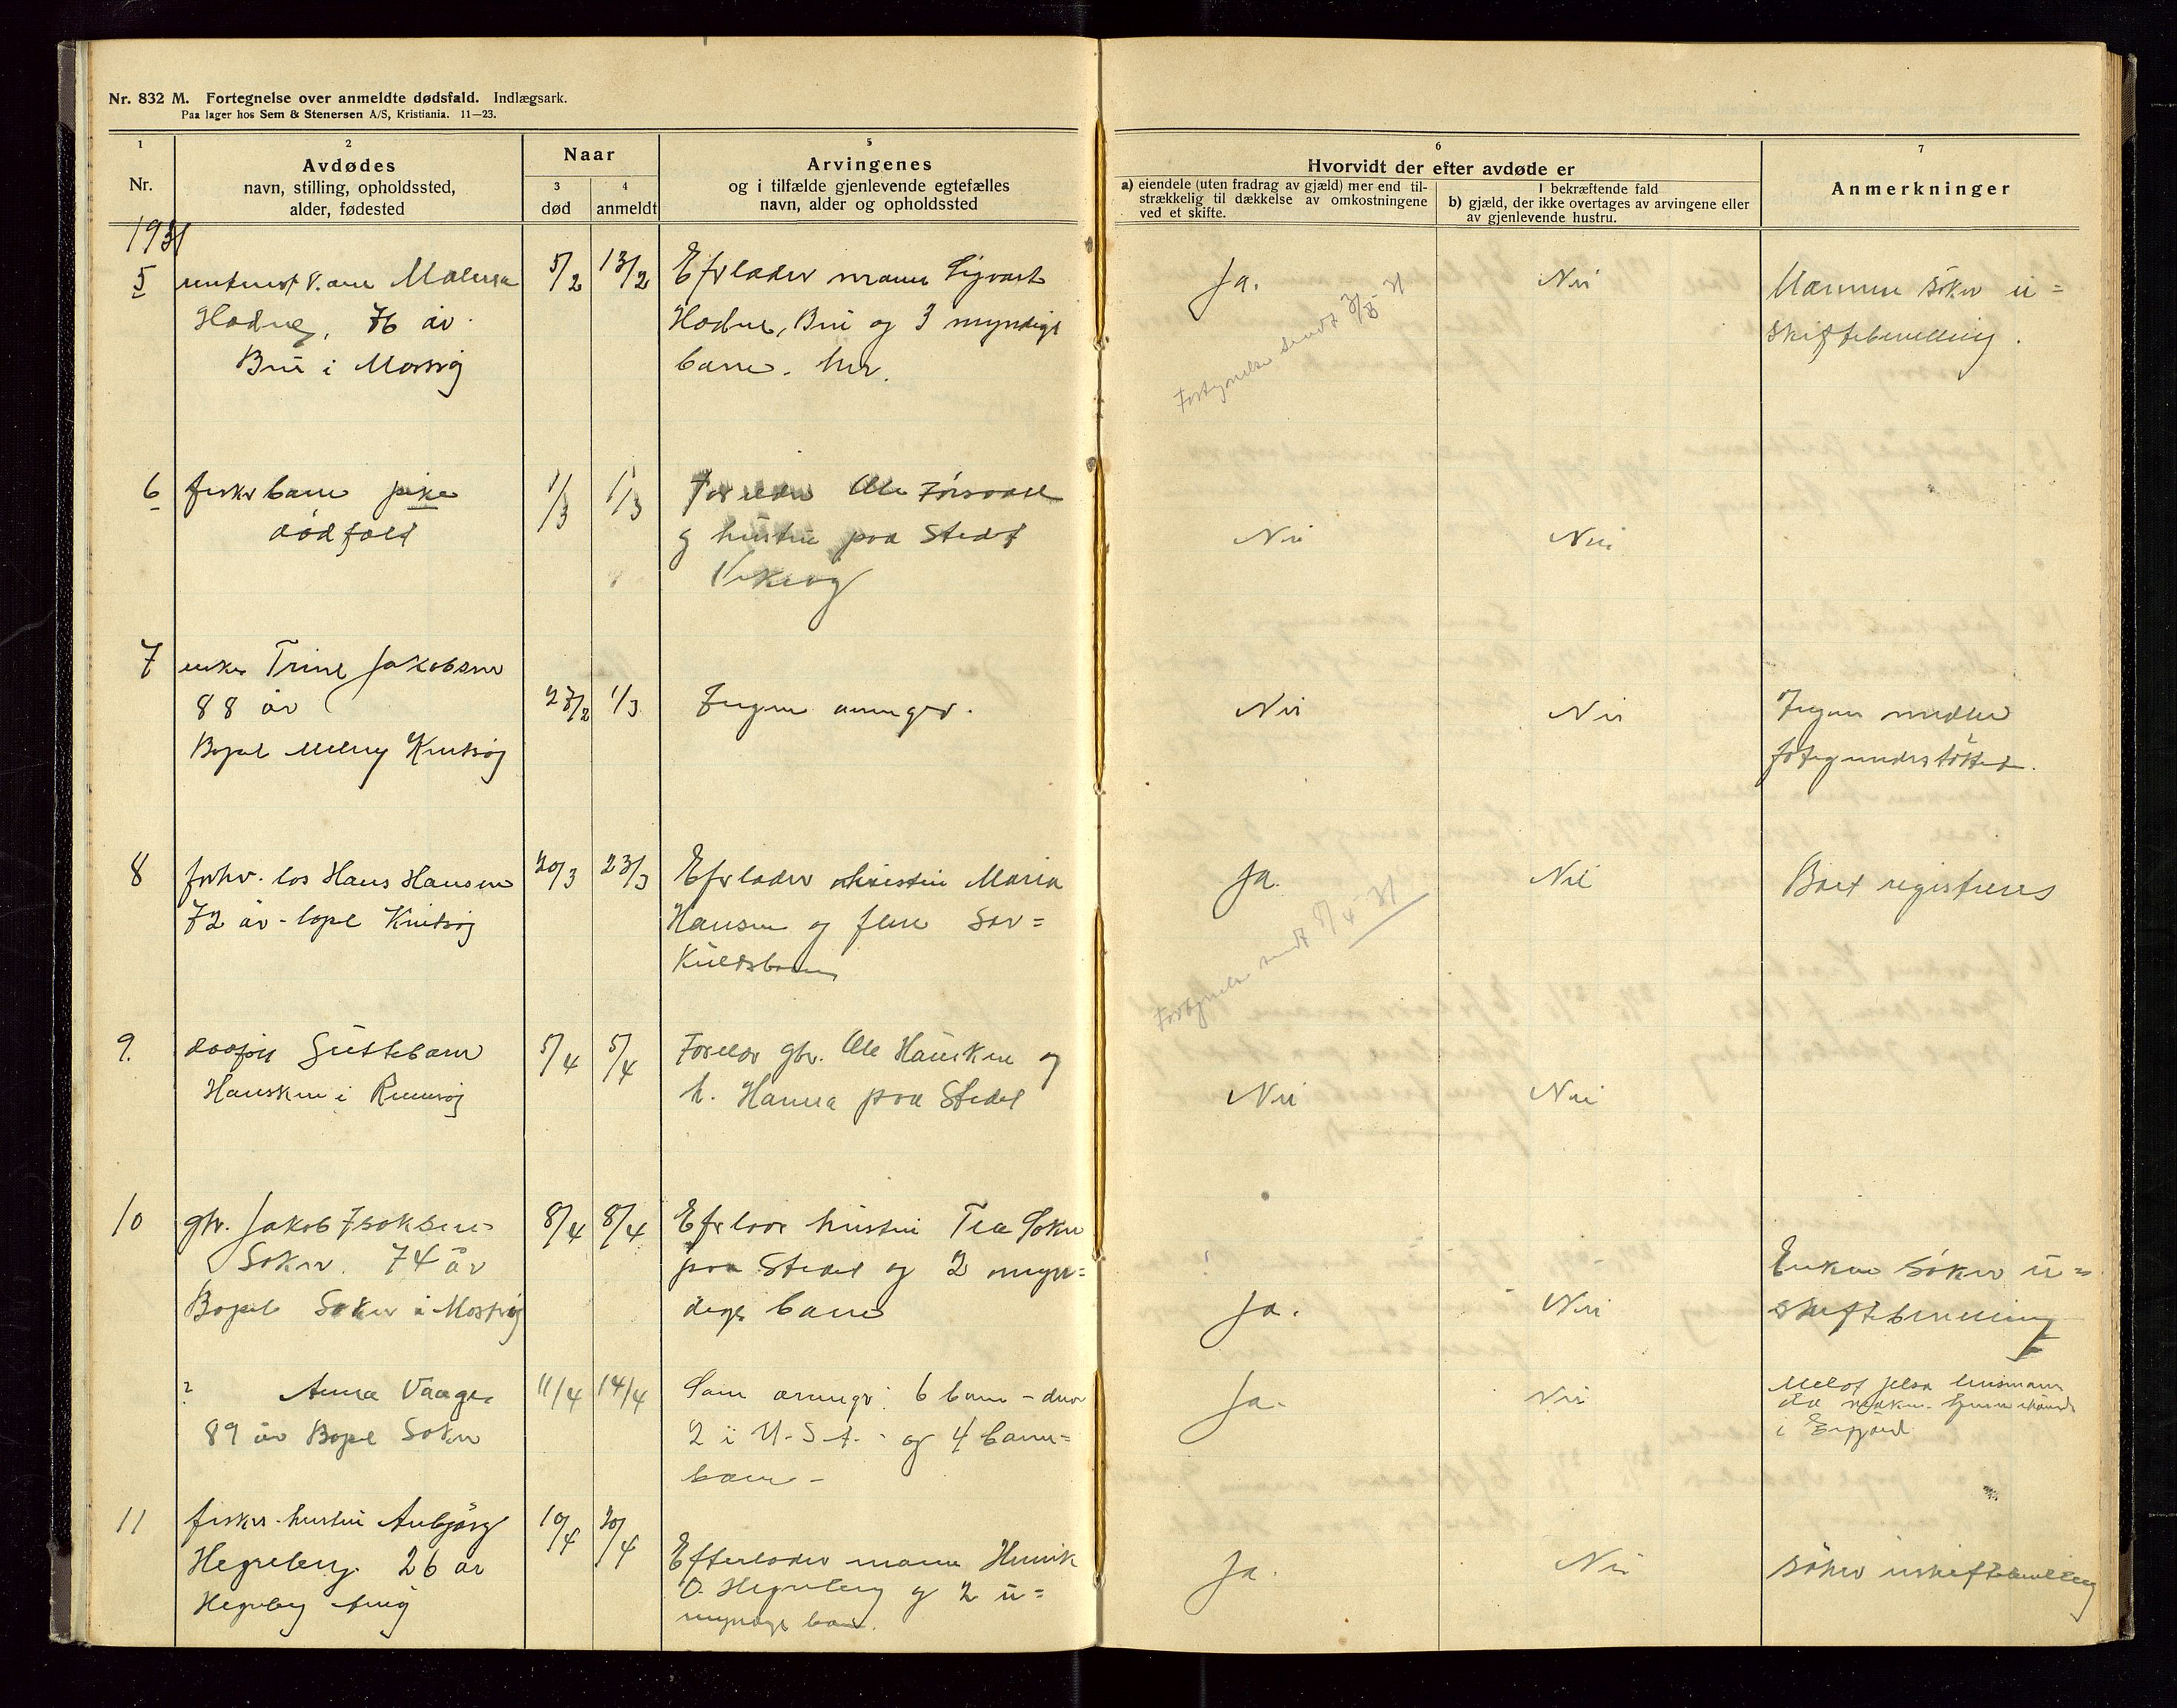 Nr. 832 M. Fortegnelse over anmeldte dødsfald. Indlægsark.
Paa lager hos Sem & Stenersen A/S, Kristiania. 11—23.
1
Nr.
2
Avdødes
navn, stilling, opholdssted,
alder, fødested
Naar
3
død
4
anmeldt
5
Arvingenes
og i tilfælde gjenlevende egtefælles
navn, alder og opholdssted
6
Hvorvidt der efter avdøde er
a) eiendele (uten fradrag av gjæld) mer end til-
strækkelig til dækkelse av omkostningene
ved et skifte.
I bekræftende fald
b) gjæld, der ikke overtages av arvingene eller
av gjenlevende hustru.
7
Anmerkninger
1931
5
Malena
Hodne, 76 år.
Bru i Mosvig
5/2
13/2
Efterlader mann Sigvart
Hodne, Bru og 3 myndige
barn. her.
Ja.
Fortegnelse sendt
Nei
Mannen søker u=
skiftebevilling.
6
fisker barn pike
dødfødt
1/3
1/3
Forældre Ole
og hustru paa Stedet
Nei
Nei
7
enke Trine Jakobsen
88 år
Bopel Meling Kvitsøy
27/2
1/3
Ingen arvinger.
Nei
Nei
Ingen midler
fattigunderstøttet.
8
forhv. los Hans Hansen
72 år - bopel Kvitsøy
20/3
23/3
Efterlader Maria
Hansen og flere Sør=
kuldsbarn
Ja.
Fortegnelse sendt 8/4-31
Nei
Boet registreres
9.
dødfødt Guttebarn
Hausken i Rennesøy
5/4
5/4
Forældre gbr. Ole Hausken og
h. Hanna paa Stedet
Nei
Nei
10
gbr. Jakob Isaksen
Sokn. 74 år
Bopel Sokn i Mosterøy
8/4
8/4
Efterlader hustru Tea Sokn
paa Stedet og 2 myn=
dige barn
Ja.
Nei
Enken søker u=
skiftebevilling
?
Anna Vaage
89 år Bopel Sokn
11/4
14/4
Som arvinger: 6 barn - derav
2 i U.S.A. og 4 barne=
barn -
Ja.
Nei
Meldt Jelsa lensmann
i Erfjord
11
fisker hustru Anbjørg
Hegreberg. 26 år
Hegreberg
10/4
20/4
Efterlader mann Henrik
O. Hegreberg og 2 u=
myndige barn.
Ja.
Nei
søker uskiftebevilling